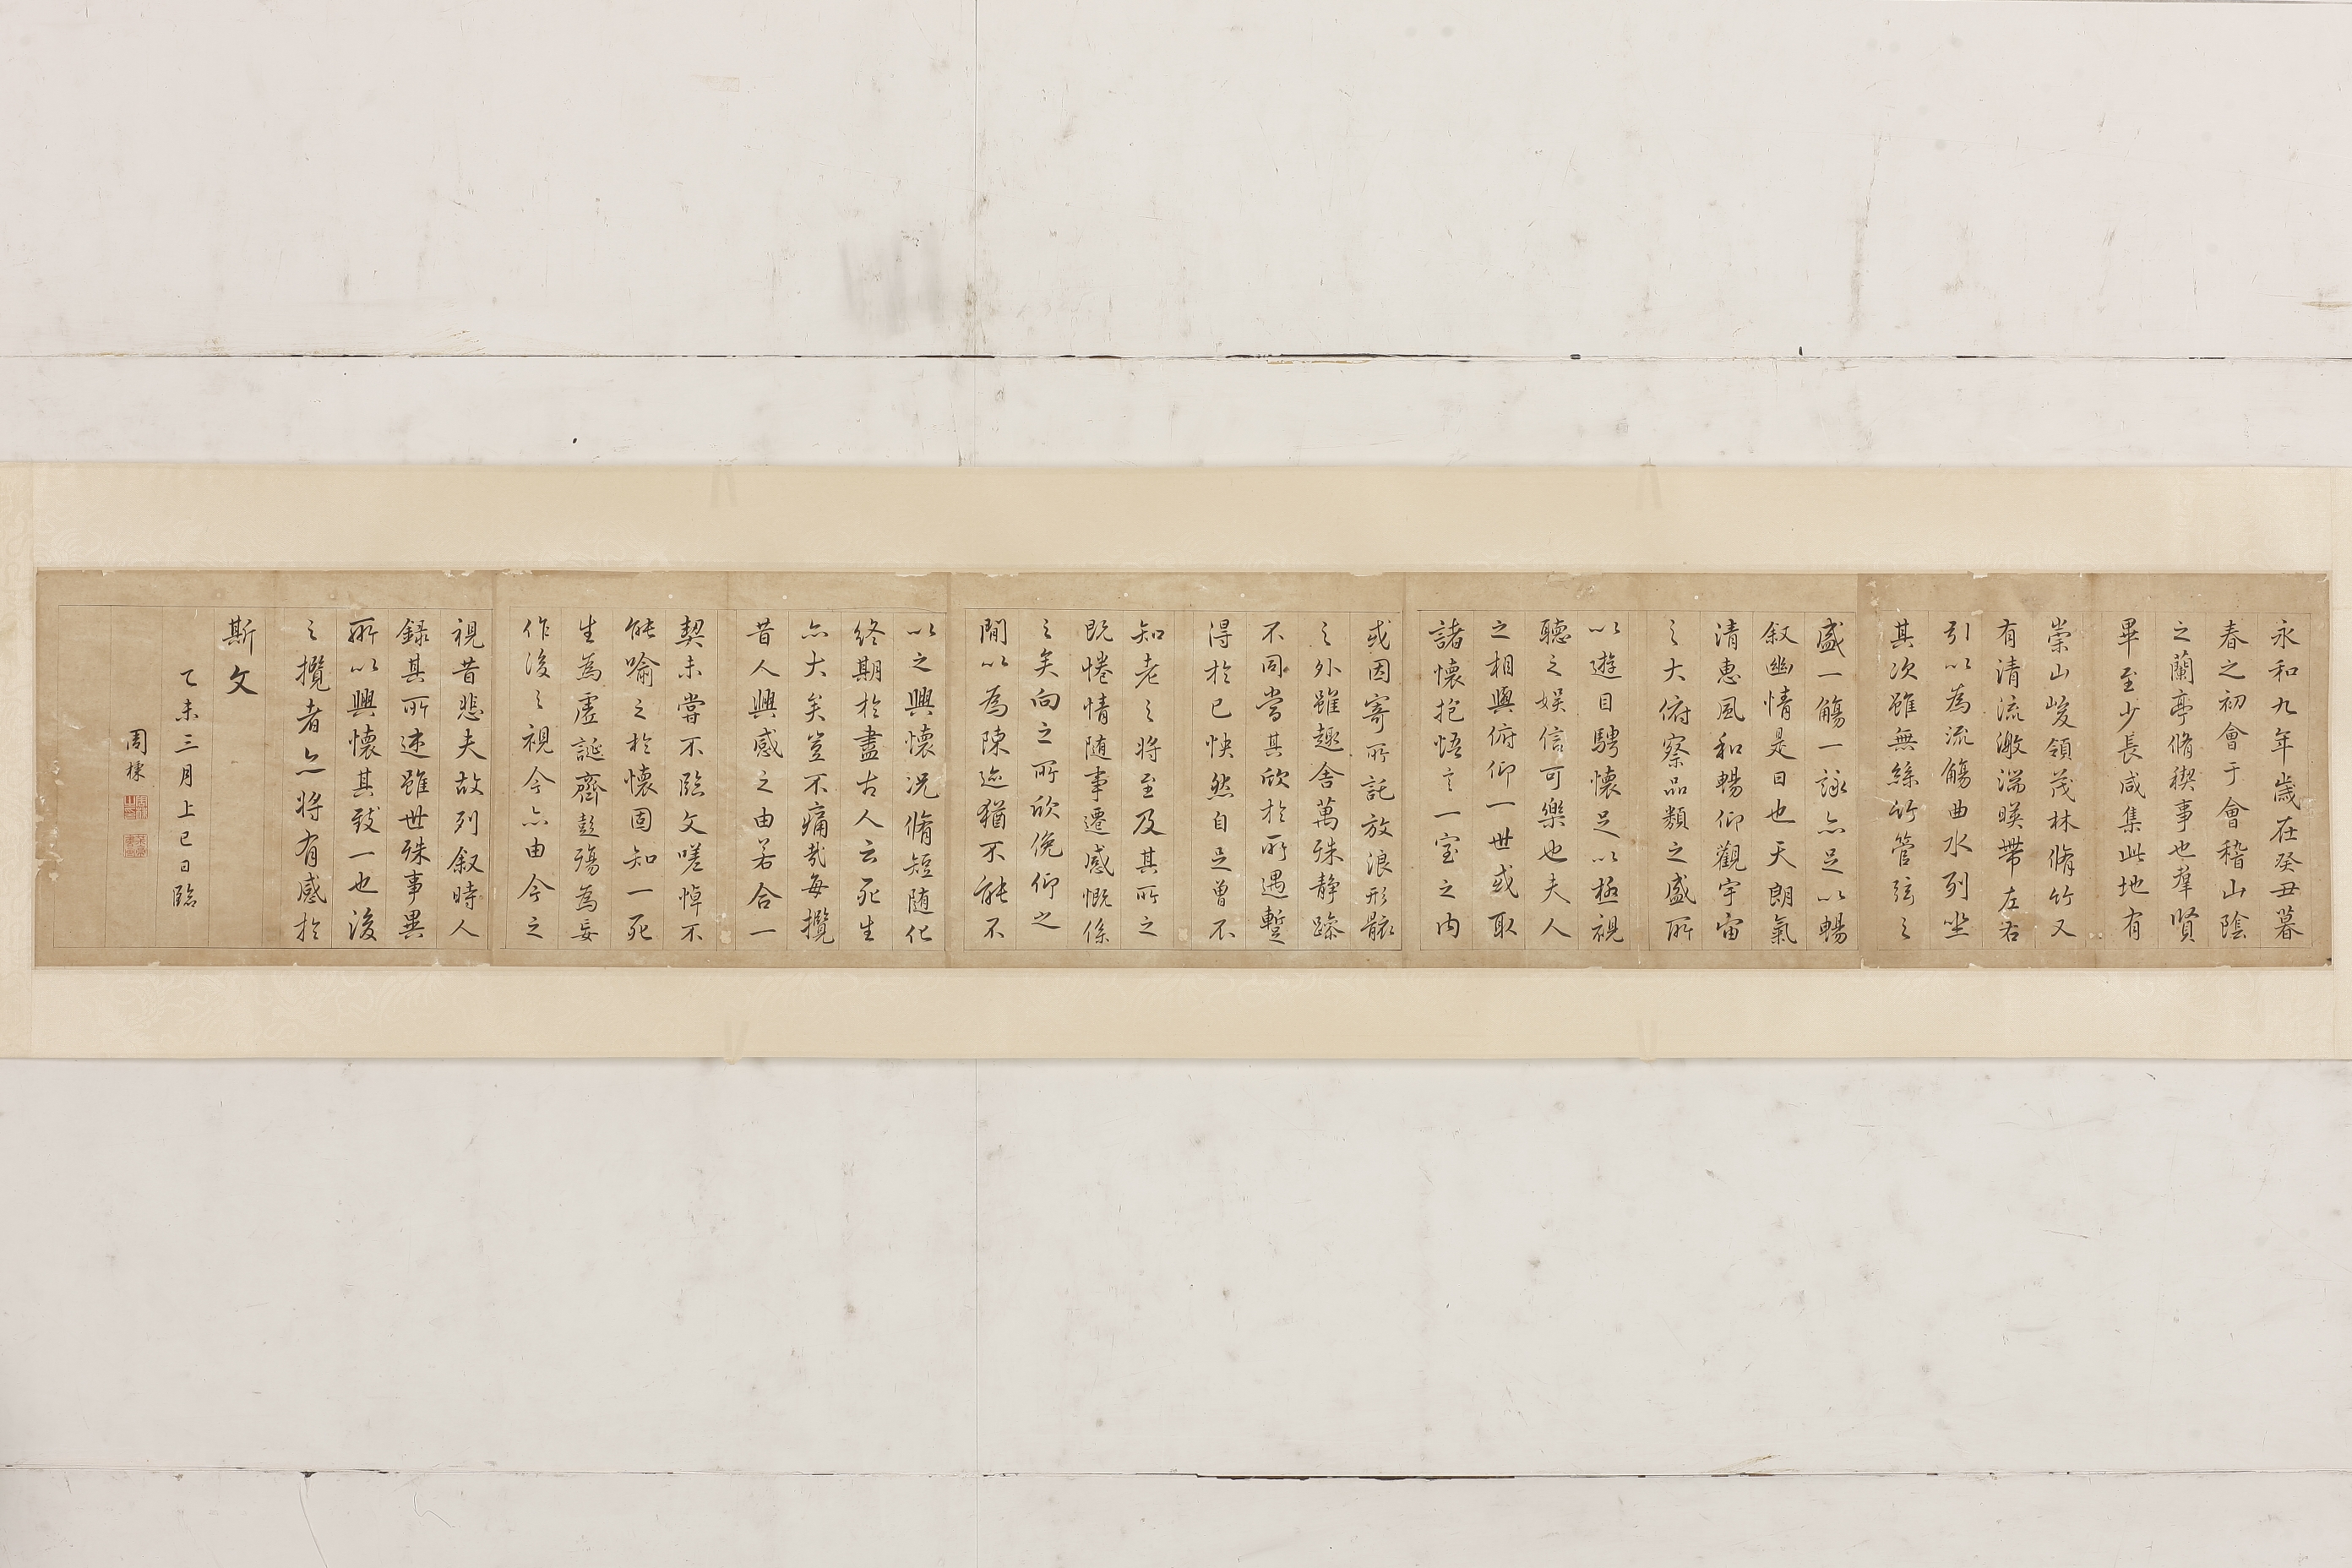 永和九年歲在癸丑暮
春之初會于會稽山陰
之蘭亭脩稧事也羣賢
畢至少長咸集此地有
崇山峻領茂林脩竹又
有清流激湍暎帶左右
引以為流觴曲水列坐
其次雖無絲竹管弦之
盛一觴一詠亦足以暢
叙幽情是日也天朗氣
清惠風和暢仰觀宇宙
之大俯察品類之盛所
以遊目騁懷足以極視
聽之娛信可樂也夫人
之相與俯仰一世或取
諸懷抱悟言一室之內
或因寄所託放浪形骸
之外雖趣舍萬殊静躁
不同當其欣於所遇蹔
得於己怏然自足曾不
知老之將至及其所之
既惓情随事遷感慨係
之矣向之所欣俛仰之
間以為陳迹猶不能不
以之興懷况脩短随化
終期於盡古人云死生
亦大矣豈不痛哉每攬
昔人興感之由若合一
契未甞不臨文嗟悼不
能喻之於懷固知一死
生為虛誕齊彭殤為妄
作後之視今亦由今之
視昔悲夫故列叙時人
錄其所述雖世殊事異
所以興懷其致一也後
之攬者亦將有感於
斯文
乙未三月上巳日臨
周棟